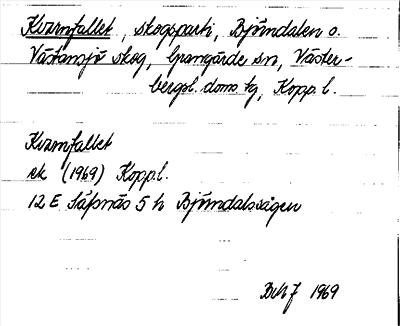 Kvarnfallet, skogsparti, Björndalen o.
Västansjö skog, Grangärde sn, Väster-
bergsl. doms tg, Kopp. l.
Kvarnfallet
ek (1969) Kopp.l.
12 E Säfsnäs 5 h Björndalsvägen
1969